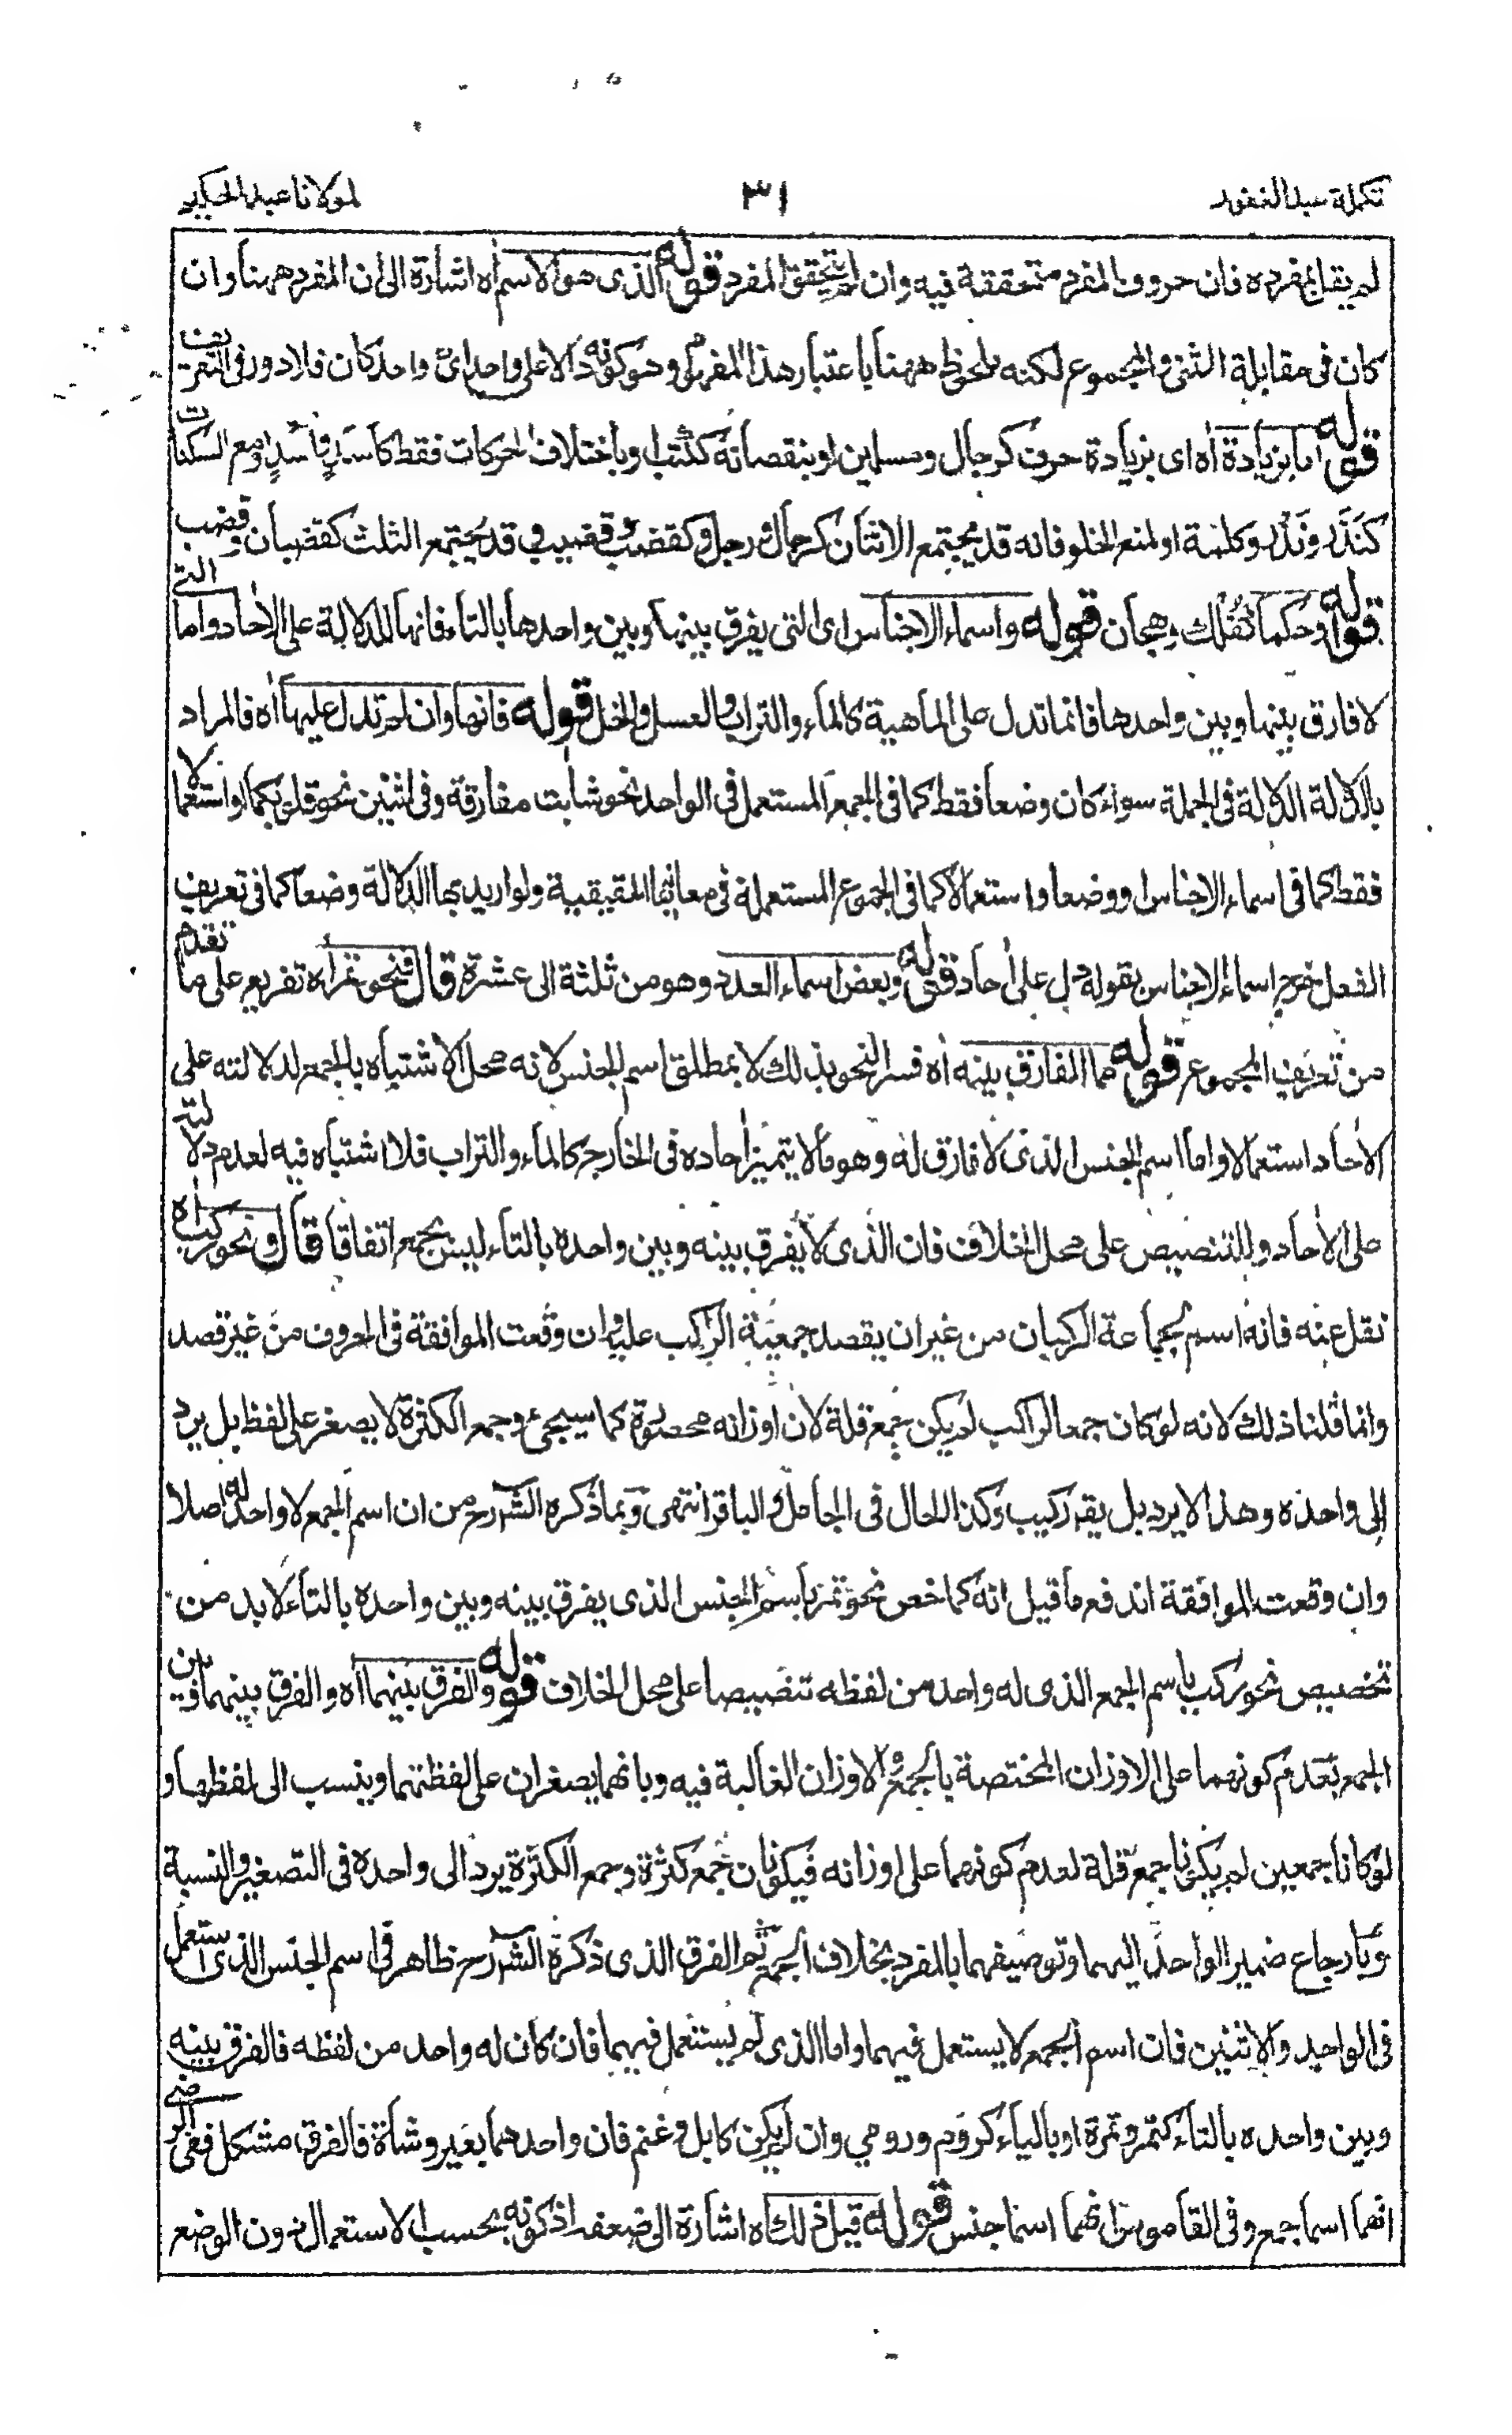 تكملة عبد الغفور
٣١
لمولانا عبد الحكيم
لم يقل بمفرده فان حروف المفرد متحققة فيه وان لم يتحقق المفرد قوله الذى هو الاسم اه اشارة الى ان المفرد ههنا وان
كان فى مقابلة المثنى والمجموع لكنه ملحوظ ههنا باعتبار هذا المفهوم وهو كونه دالا على واحد اىّ واحد كان فلا دور فى التعريف
قوله اما بزيادة اه اى بزيادة حرف كرجال ومسلمين او بنقصانه ككتب او باختلاف الحركات فقط كأسد وأسد او مع السكنات
كنذر ونذر وكلمة او لمنع الخلو فانه قد يجتمع الاثنان كرجال ورجل وكقضب وقضيب وقد يجتمع الثلث كقضبان وقضيب
قوله او حكما كفلك وهجان قوله واسماء الاجناس اى التى يفرق بينها وبين واحدها بالتاء فانها للدلالة على الآحاد واما التى
لا فارق بينها وبين واحدها فانما تدل على الماهية كالماء والتراب والعسل والخل قوله فانها وان لم تدل عليها اه فالمراد
بالدلالة الدلالة فى الجملة سواء كان وضعا فقط كما فى الجمع المستعمل فى الواحد نحو شابت مفارقه وفى اثنين نحو قلوبكما او استعمالا
فقط كما فى اسماء الاجناس او وضعا واستعمالا كما فى الجموع المستعملة فى معانيها الحقيقية ولو اريد بها الدلالة وضعا كما فى تعريف
الفعل خرج اسماء الاجناس بقوله دل على آحاد قوله وبعض اسماء العدد وهو من ثلثة الى عشرة قال فنحو تمر اه تفريع على ما تقدم
من تعريف المجموع قوله مما الفارق بينه اه فسر النحو بذلك لا بمطلق اسم الجنس لانه محل الاشتباه بالجمع لدلالته على
الآحاد استعمالا واما اسم الجنس الذى لا فارق له وهو ما لا يتميز آحاده فى الخارج كالماء والتراب فلا اشتباه فيه لعدم دلالته
على الآحاد وللتنصيص على محل الخلاف فان الذى لا يفرق بينه وبين واحده بالتاء ليس بجمع اتفاقا قال ونحو ركب اه
نقل عنه فانه اسم لجماعة الركبان من غير ان يقصد جمعية الراكب عليه وان وقعت الموافقة فى الحروف من غير قصد
وانما قلنا ذلك لانه لو كان جمعا لراكب لم يكن جمع قلة لان اوزانه محصورة كما سيجئ وجمع الكثرة لا يصغر على لفظ بل يرد
الى واحده وهذا لا يرد بل يقه ركيب وكذا الحال فى الجامل والباقر انتهى وبما ذكره الشه رح من ان اسم الجمع لا واحد له اصلا
وان وقعت الموافقة اندفع ما قيل انه كما خص نحو تمر باسم الجنس الذى يفرق بينه وبين واحده بالتاء لا بد من
تخصيص نحو ركب باسم الجمع الذى له واحد من لفظه تنصيصا على محل الخلاف قوله والفرق بينهما اه والفرق بينهما وبين
الجمع بعدم كونهما على الاوزان المختصة بالجمع والاوزان الغالبة فيه وبانهما يصغران على لفظهما وينسب الى لفظهما و
لو كانا جمعين لم يكونا جمع قلة لعدم كونهما على اوزانه فيكونان جمع كثرة وجمع الكثرة يرد الى واحده فى التصغير والنسبة
وبارجاع ضمير الواحد اليهما وتوصيفهما بالمفرد بخلاف الجمع ثم الفرق الذى ذكره الشه رح ظاهر فى اسم الجنس الذى استعمل
فى الواحد والاثنين فان اسم الجمع لا يستعمل فيهما واما الذى لم يستعمل فيهما فان كان له واحد من لفظه فالفرق بينه
وبين واحده بالتاء كتمر وتمرة او بالياء كروم ورومي وان لم يكن كابل وغنم فان واحدهما بعير وشاة فالفرق مشكل ففى الرضى
انهما اسما جمع وفى القاموس انهما اسما جنس قوله قيل ذلك اه اشارة الى ضعفه اذ كونه بحسب الاستعمال دون الوضع